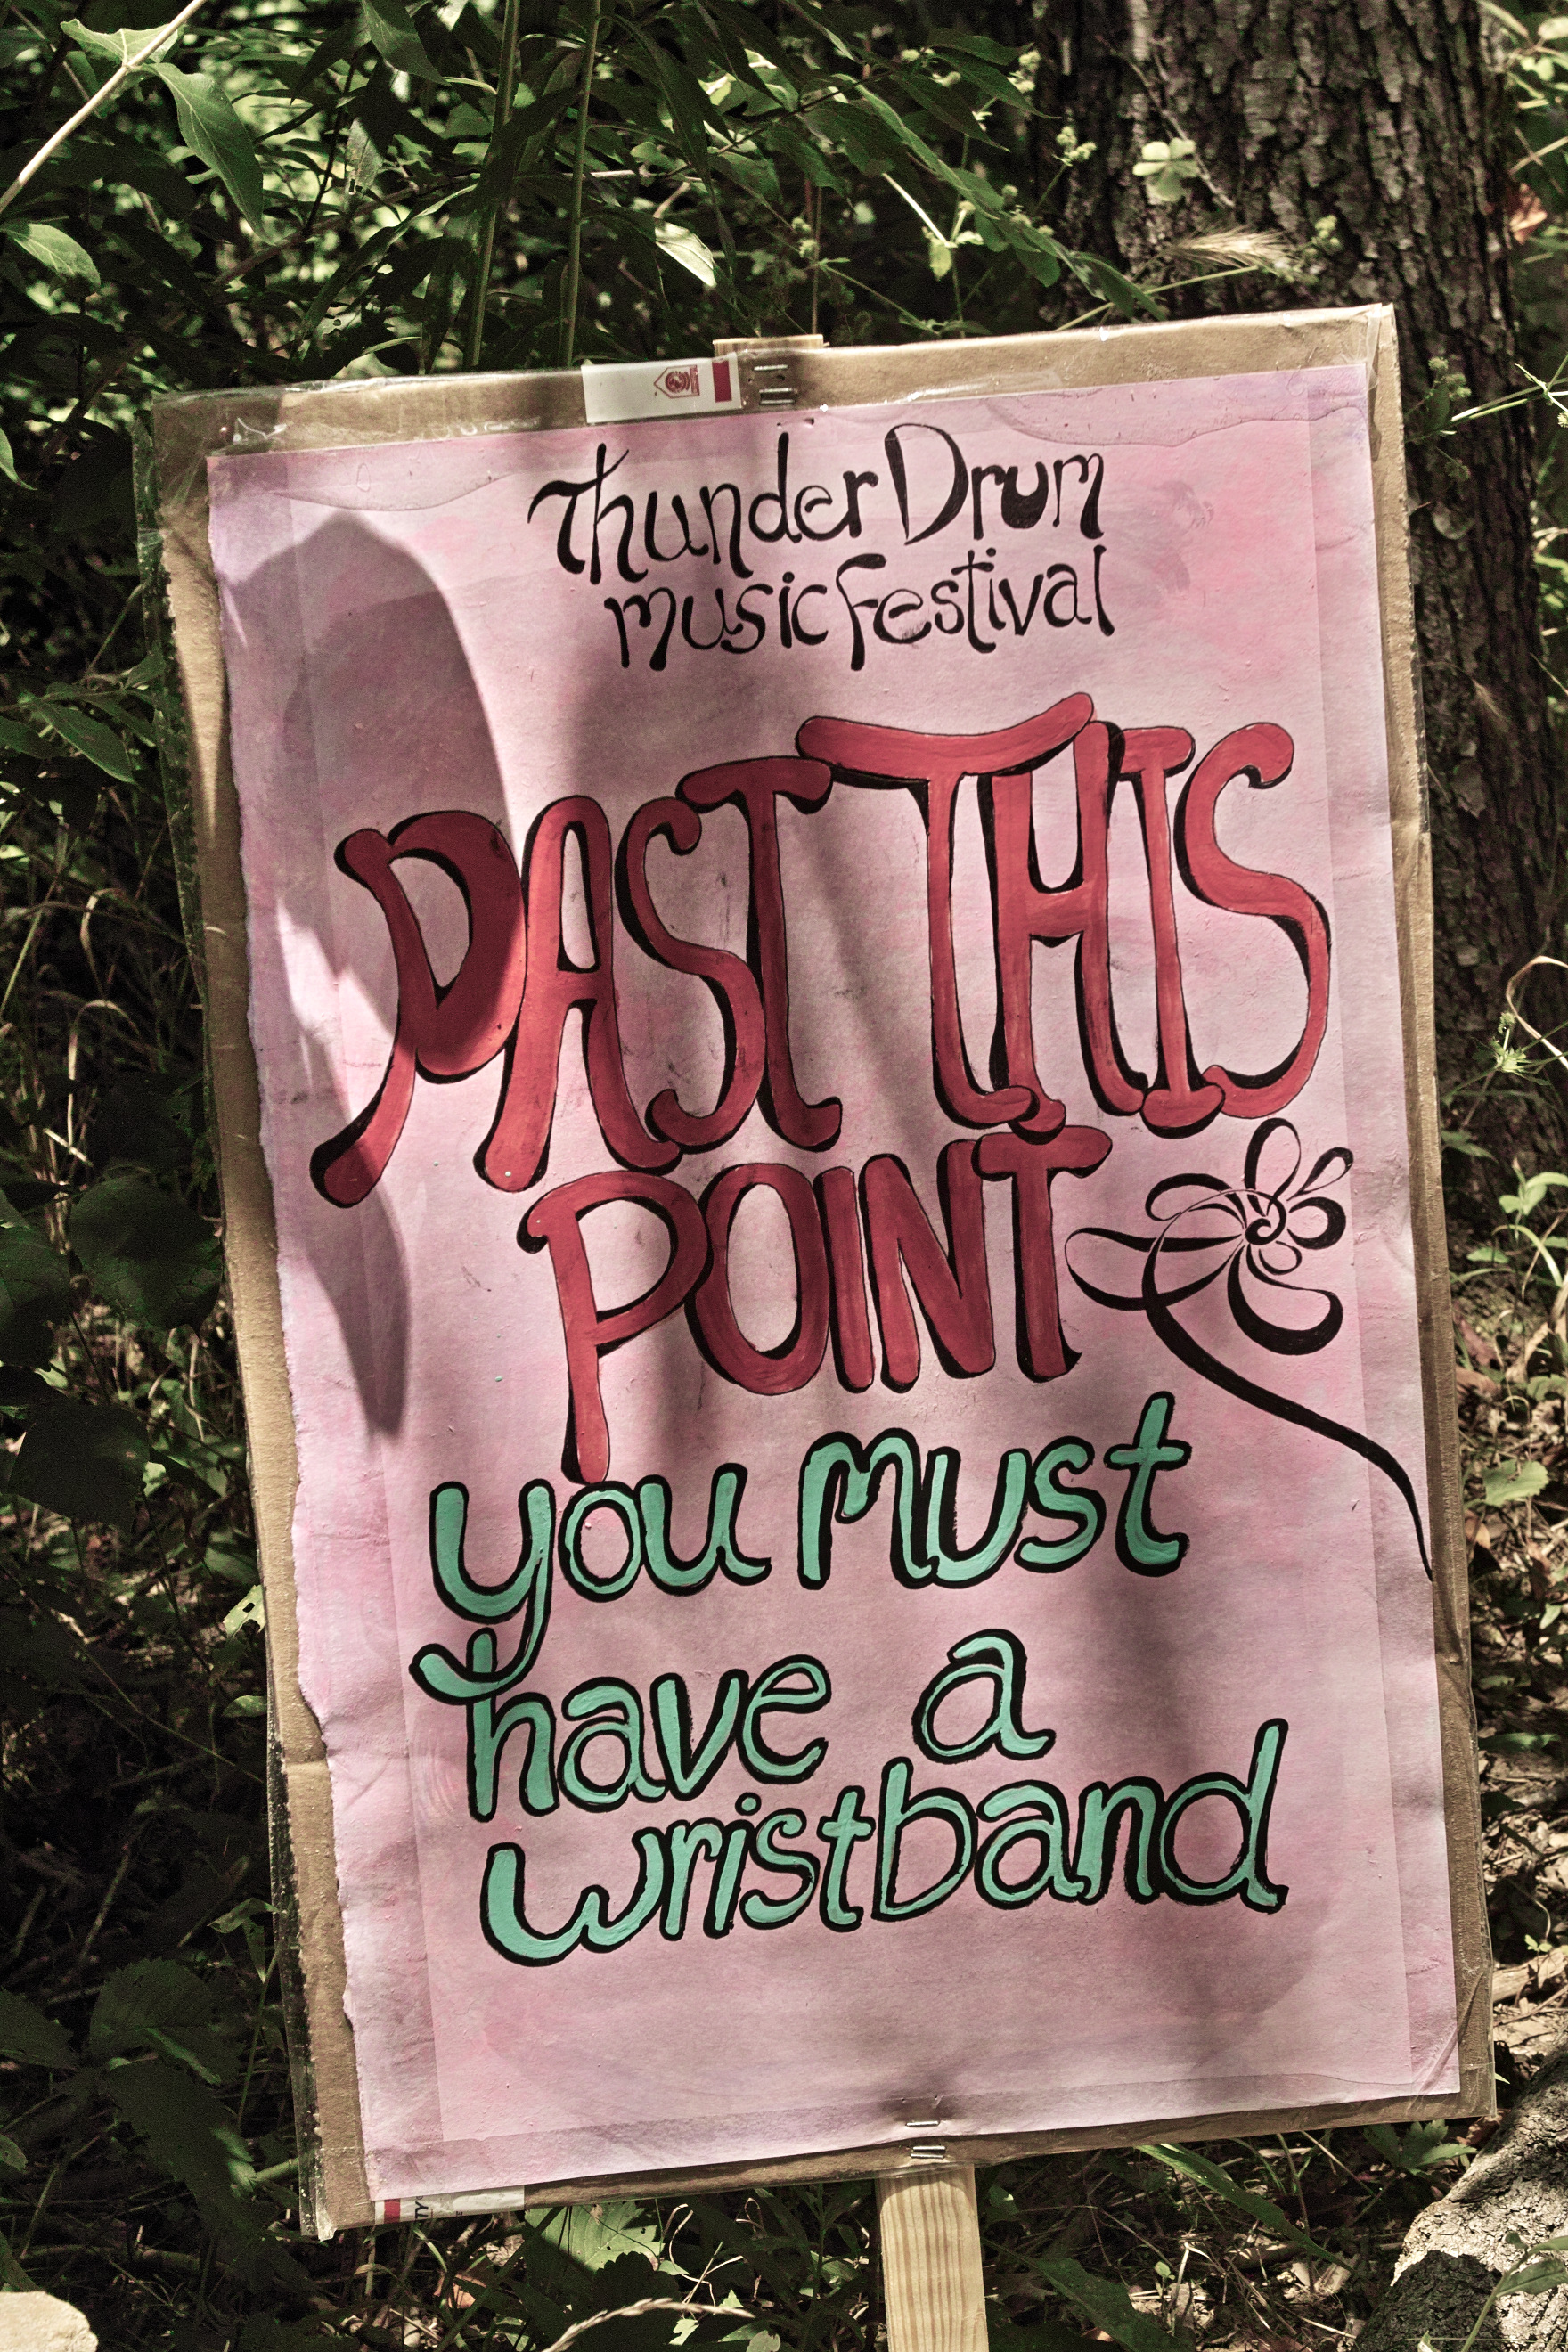 Thunder Drum
music festival
PAST THIS
POINT
you must
have a
wristband